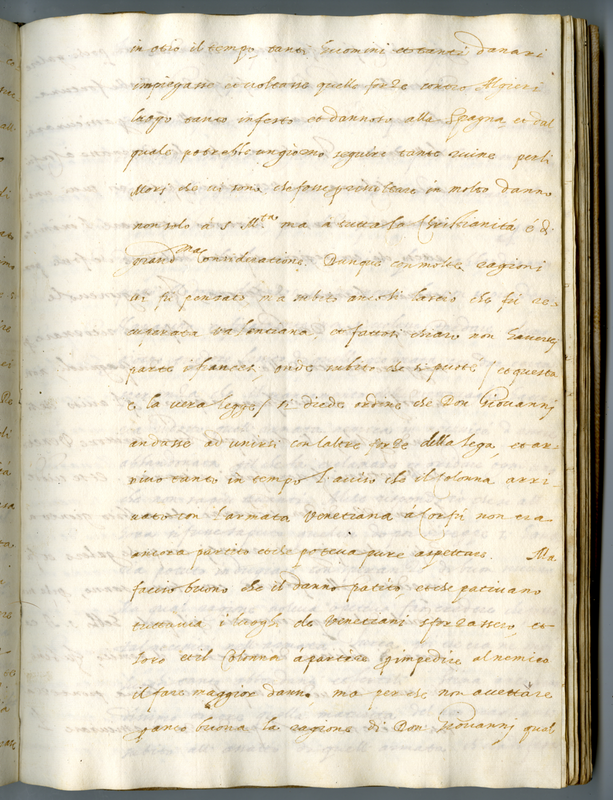 in otio il tempo, tanti huomini et tanti danari
impiegasse et voltasse quelle forze contro Algieri
luogo tanto infesto et dannoso alla Spagna, et dal
quale potrebbe un giorno seguire tante ruine per li
Mori che vi sono, che fosse per risultare in molto danno
non solo à S. M.tà ma à tutta la Christianità é di
grand.ma Consideratione. Dunque con molte ragioni
vi fù pensato, ma subito anco si lasciò che fù re-
cuperata Valenciana, et fattosi chiaro non
i francesi, onde subito che si puoté / et questa
é la vera legge / si diede ordine che Don Giovannj
andasse ad unirsi con l'altre forze della lega, et ar-
rivò tanto in tempo l'aviso che il Colonna arri
vato con l'armata Venetiana à Corfù non era
ancora partito et che poteva pure aspettare. Ma
faccio buono che il danno patito et che pativano
tuttavia i luoghi de Venetiani sforzasse, et
loro et il Colonna à partire per impedire al nemico
il fare maggior danno, ma perche non accettare
per anco buona la ragione di Don Giovannj qual